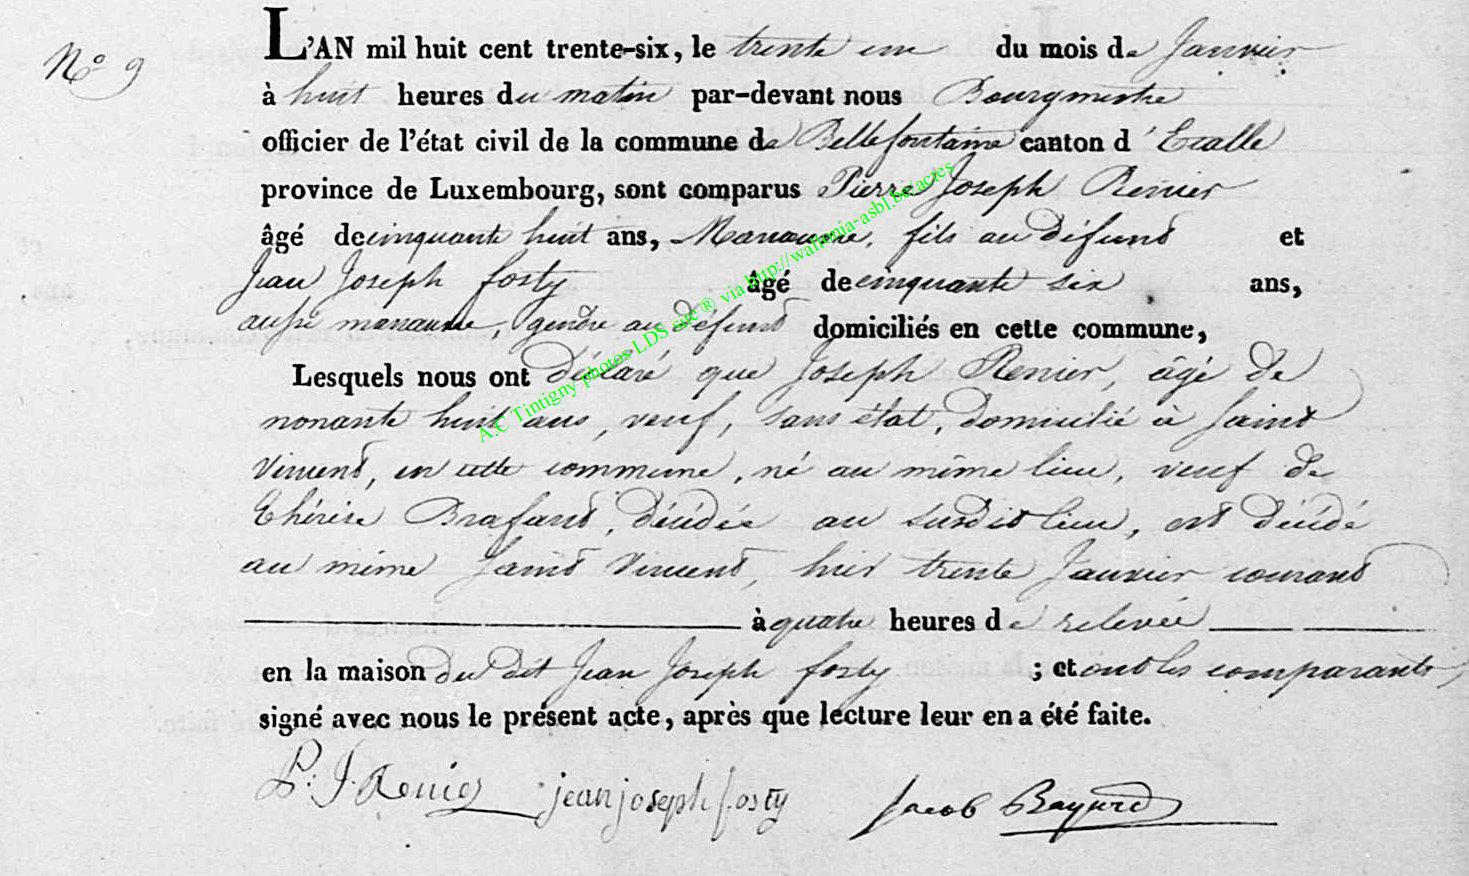 N.° 9
L'AN mil huit cent trente-six, le trente un du mois de Janvier
à huit heures du matin par-devant nous Bourgmestre
officier de l'état civil de la commune de Bellefontaine canton d'Etalle
province de Luxembourg, sont comparus Pierre Joseph Renier
âgé de cinquante huit ans, Manœuvre, fils au défunt et
Jean Joseph fosty âgé de cinquante six ans,
aussi manœuvre, gendre au défunt domiciliés en cette commune,
Lesquels nous ont déclaré que Joseph Renier, âgé de
nonante huit ans, veuf, sans état, domicilié à Saint
Vincent, en cette commune, né au même lieu, veuf de
Thérèse Brafand, décédée au susdit lieu, est décédé
au même Saint Vincent, hier trente Janvier courant
à quatre heures de relevée
en la maison du dit Jean Joseph fosty ; et ont les comparants,
signé avec nous le présent acte, après que lecture leur en a été faite.
P: J. Renier jean joseph fosty Jacob Bayard
A.C Tintigny photos LDS site ® via http://wallonia-asbl.be/actes